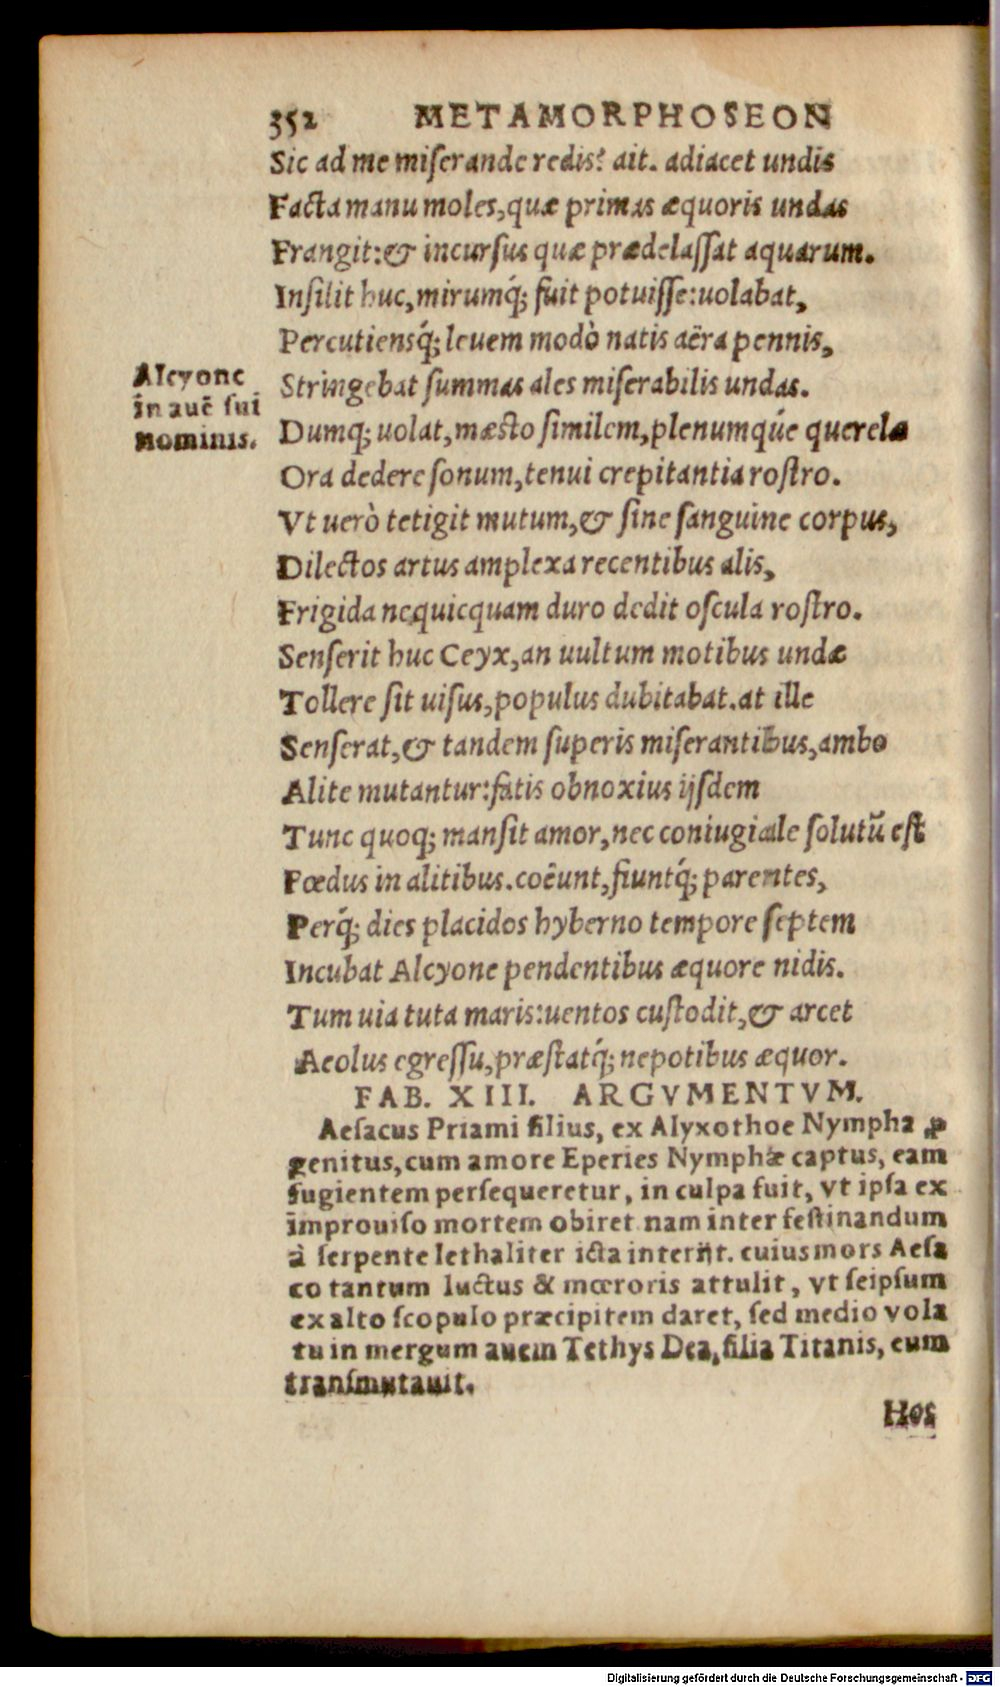 352 METAMORPHOSEON
Sic ad me miserande redis? ait. adiacet undis
Facta manu moles, quæ primas æquoris undas
Frangit: & incursus quæ prædelassat aquarum.
Insilit huc, mirumq́; fuit potuisse: uolabat,
Percutiensq́; leuem modò natis aëra pennis,
Alcyone
in auē sui
nominis.
Stringebat summas ales miserabilis undas.
Dumq; uolat, mæsto similem, plenumqúe querelæ
Ora dedere sonum, tenui crepitantia rostro.
Vt uerò tetigit mutum, & sine sanguine corpus,
Dilectos artus amplexa recentibus alis,
Frigida nequicquam duro dedit oscula rostro.
Senserit huc Ceyx, an uultum motibus undæ
Tollere sit uisus, populus dubitabat. at ille
Senserat, & tandem superis miserantibus, ambo
Alite mutantur: fatis obnoxius ijsdem
Tunc quoq; mansit amor, nec coniugiale solutū est
Fœdus in alitibus. coëunt, fiuntq́; parentes,
Perq́; dies placidos hyberno tempore septem
Incubat Alcyone pendentibus æquore nidis.
Tum uia tuta maris: uentos custodit, & arcet
Aeolus egressu, præstatq́; nepotibus æquor.
FAB. XIII. ARGVMENTVM.
Aesacus Priami filius, ex Alyxothoe Nympha ꝓ
genitus, cum amore Eperies Nymphæ captus, eam
fugientem persequeretur, in culpa fuit, vt ipsa ex
improuiso mortem obiret nam inter festinandum
à serpente lethaliter icta interijt. cuius mors Aesa
co tantum luctus & mœroris attulit, vt seipsum
ex alto scopulo præcipitem daret, sed medio vola
tu in mergum auem Tethys Dea, filia Titanis, eum
transmutauit.
Hos
Digitalisierung gefördert durch die Deutsche Forschungsgemeinschaft - DFG